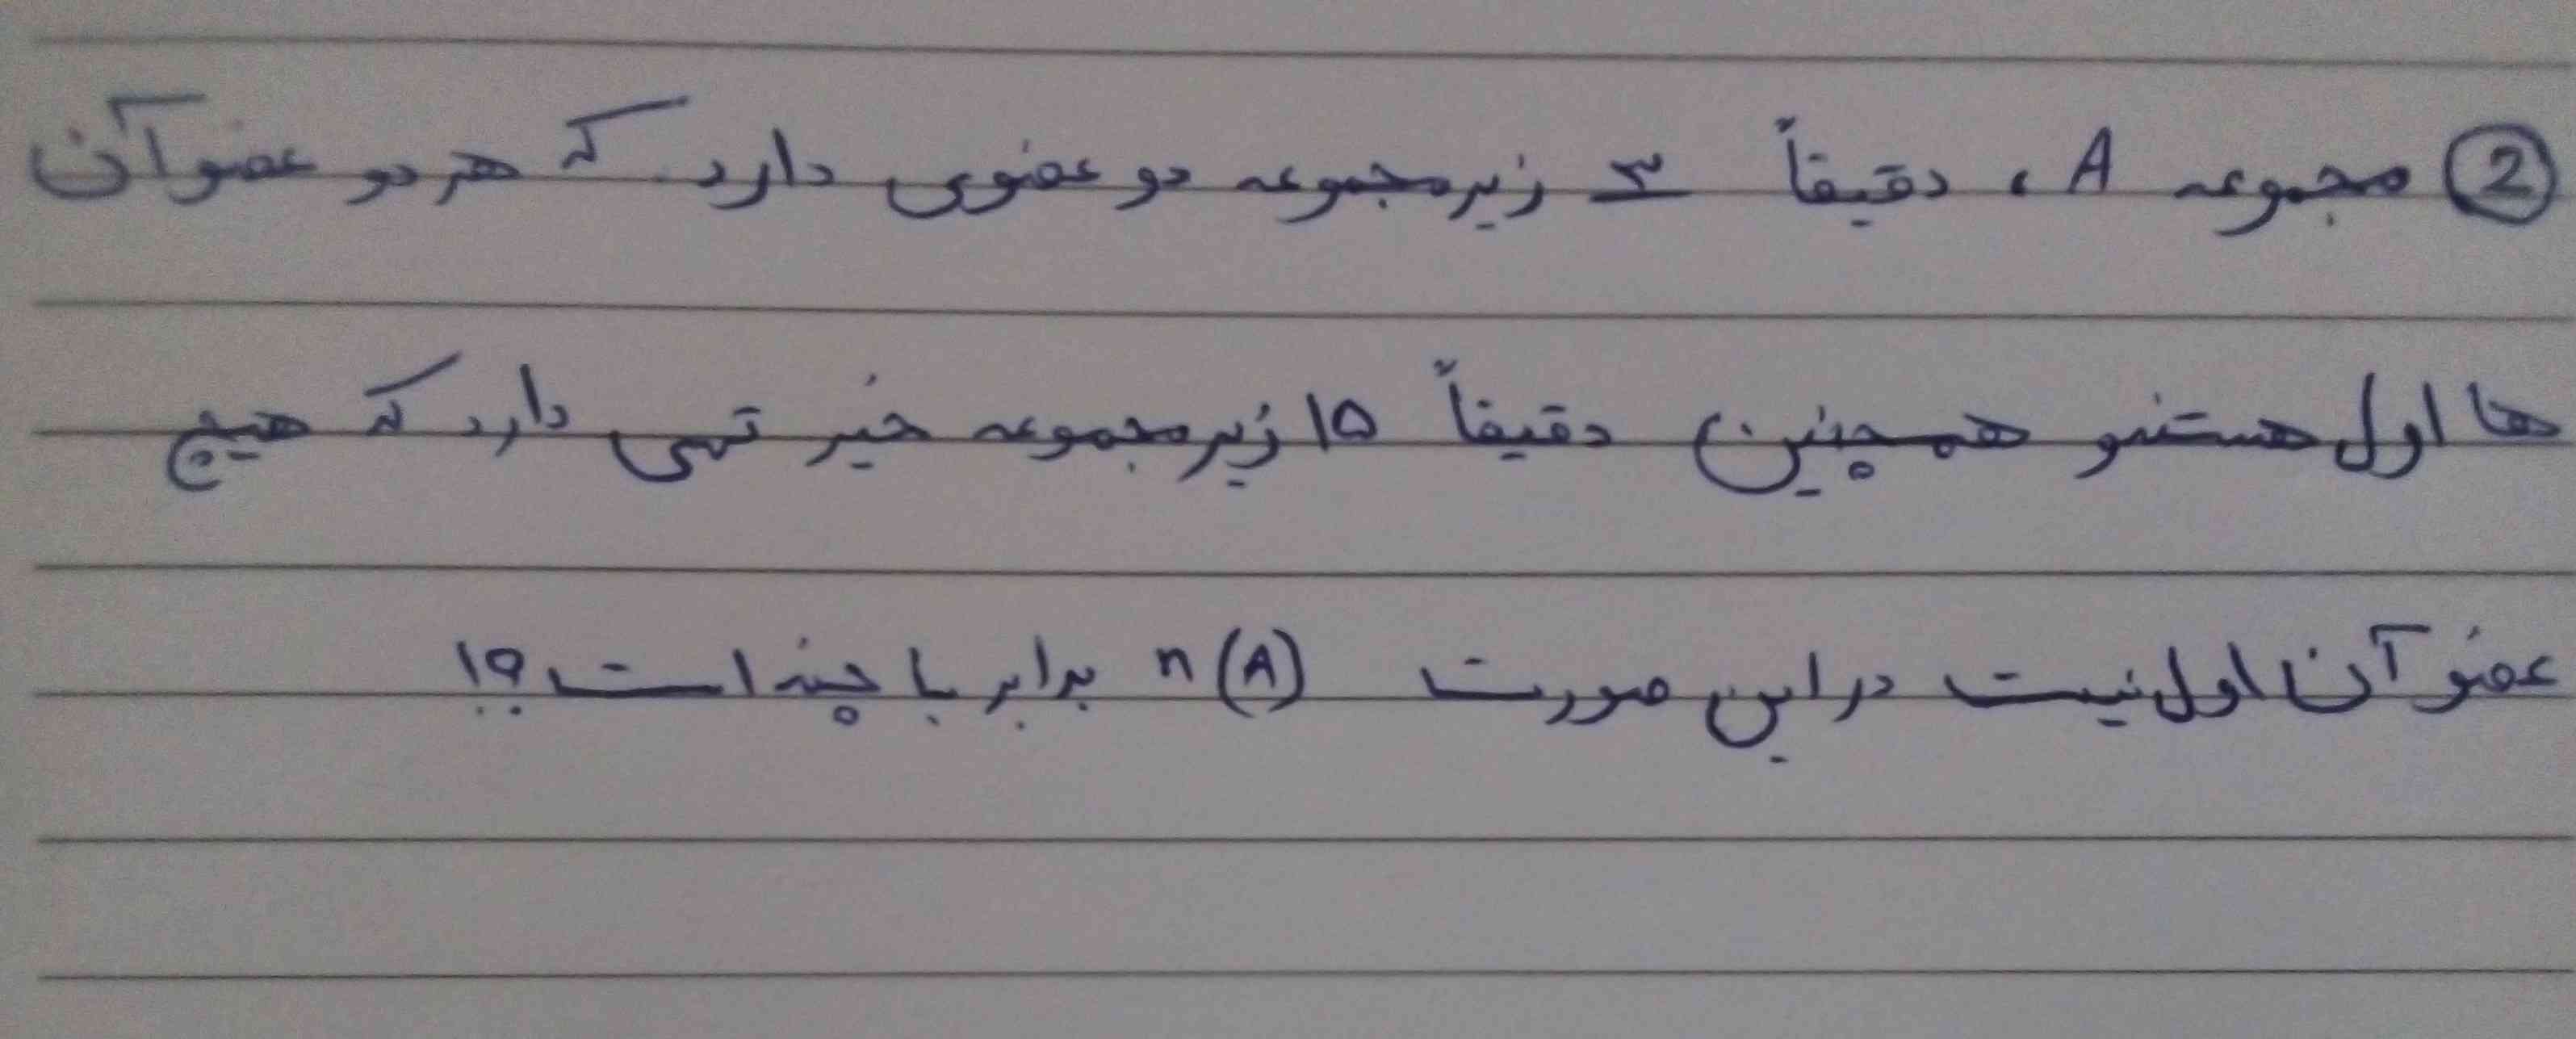 ② مجموعه A ، دقیقاً ۳ زیرمجموعه دو عضوی دارد که هر دو عضو آن
ها اول هستند و همچنین دقیقاً ۱۵ زیرمجموعه غیر تهی دارد که هیچ
عضو آن اول نیست در این صورت n(A) برابر با چند است؟!